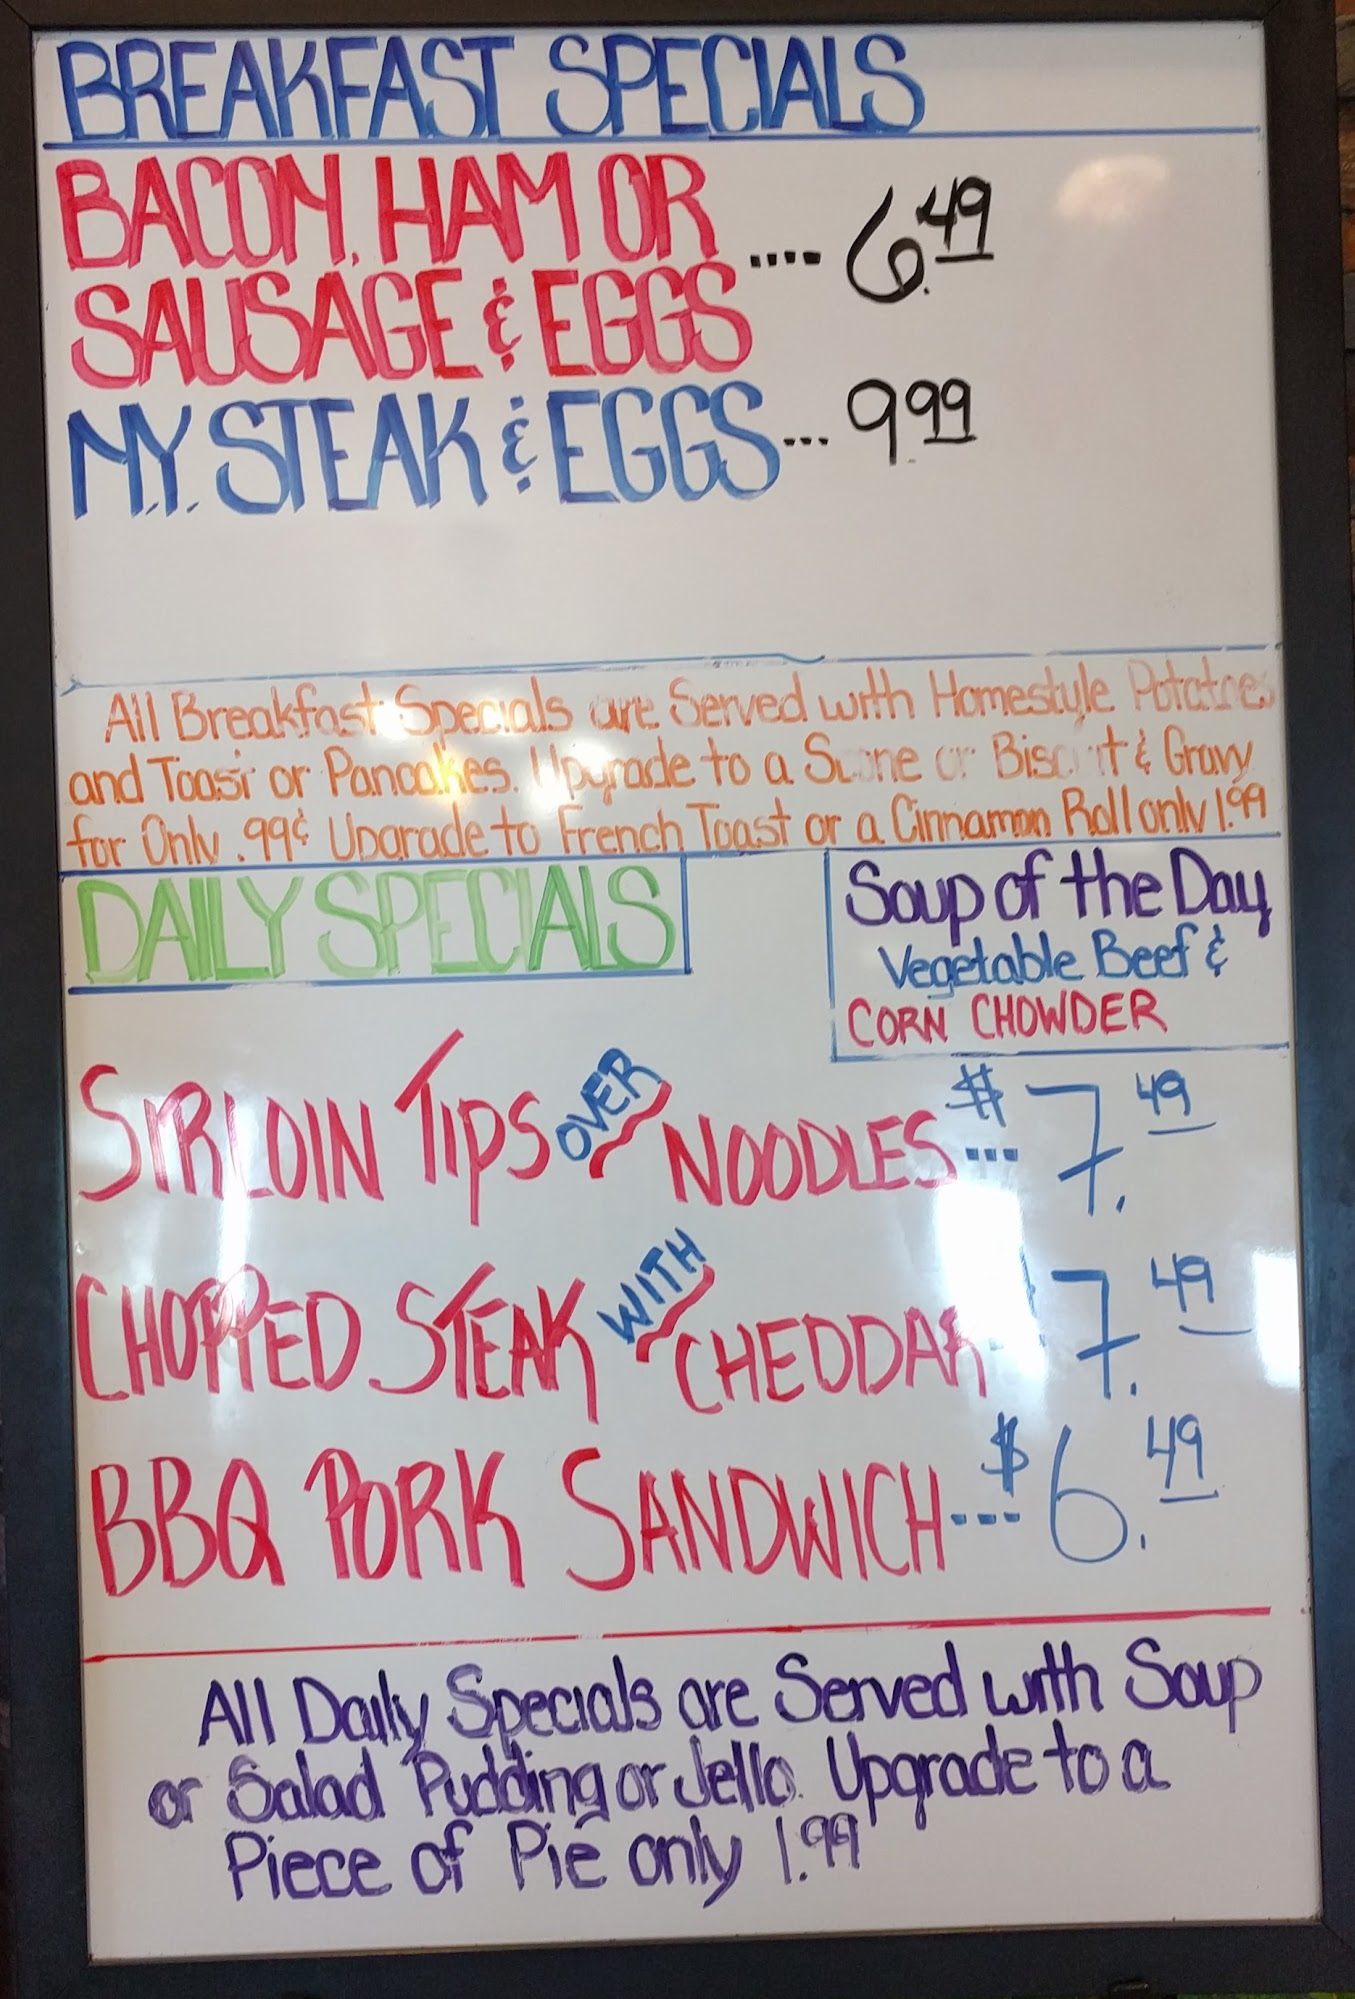 BREAKFAST SPECIALS
BACON, HAM OR
SAUSAGE & EGGS .... 6.49
N.Y. STEAK & EGGS... 9.99
All Breakfast Specials are Served with Homestyle Potatoes
and Toast or Pancakes. Upgrade to a Scone or Biscuit & Gravy
for Only .99¢ Upgrade to French Toast or a Cinnamon Roll only 1.99
DAILY SPECIALS
Soup of the Day
Vegetable Beef &
CORN CHOWDER
SIRLOIN TIPS OVER NOODLES... $7.49
CHOPPED STEAK WITH CHEDDAR 7.49
BBQ PORK SANDWICH... $6.49
All Daily Specials are Served with Soup
or Salad Pudding or Jello. Upgrade to a
Piece of Pie only 1.99